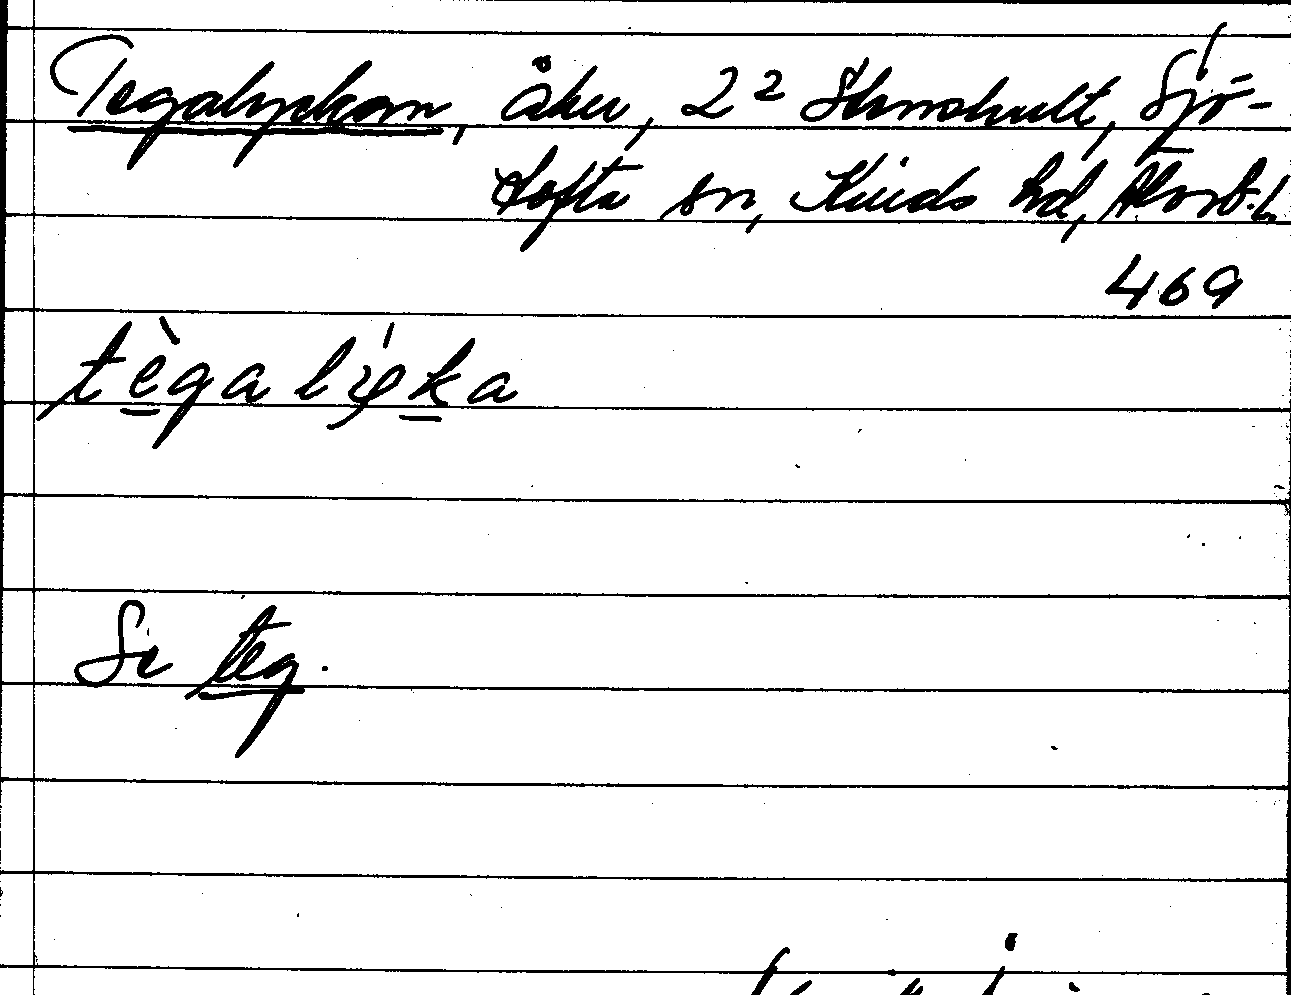 Tegalyckorn, åker, 2² Stenshult, Sjö-
tofta sn, Kinds hd, Älvsb. l.
469
tègalýcka
Se teg.